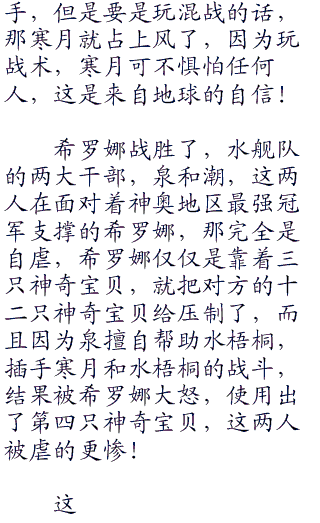 手，但是要是玩混战的话，
那寒月就占上风了，因为玩
战术，寒月可不惧怕任何
人，这是来自地球的自信！
希罗娜战胜了，水舰队
的两大干部，泉和潮，这两
人在面对着神奥地区最强冠
军支撑的希罗娜，那完全是
自虐，希罗娜仅仅是靠着三
只神奇宝贝，就把对方的十
二只神奇宝贝给压制了，而
且因为泉擅自帮助水梧桐，
插手寒月和水梧桐的战斗，
结果被希罗娜大怒，使用出
了第四只神奇宝贝，这两人
被虐的更惨！
这